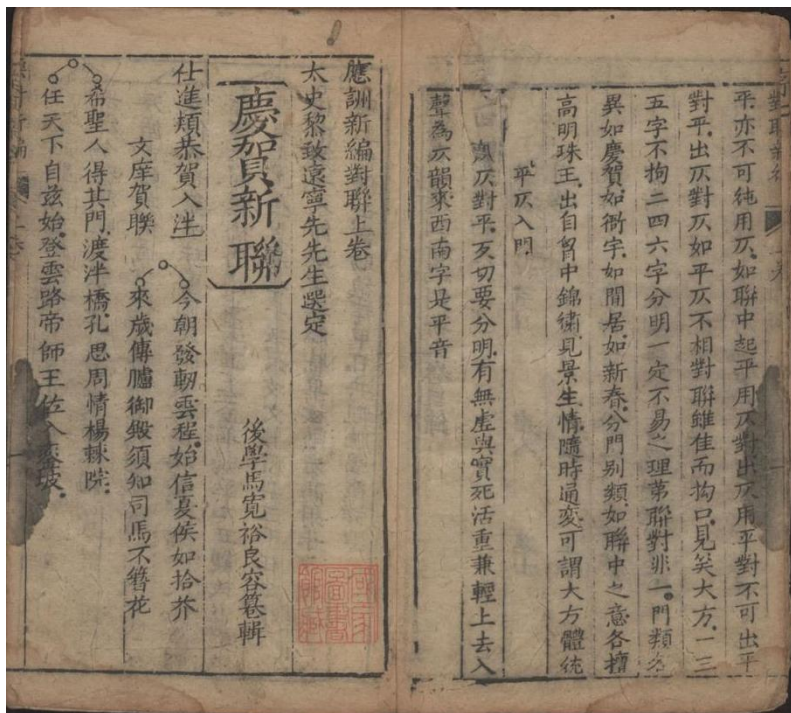 平亦不可純用仄如聯中起平用仄對出仄用平對不可出平
對平出仄對仄如平仄不相對聯雖佳而拘口見笑大方一三
五字不拘二四六字分明一定不易之理第聯對非一門類名
異如慶賀如衙宇如閒居如新春分門別類如聯中之意各擅
高明珠玉出自胷中錦綉見景生情隨時通变可謂大方體統
平仄入門
仄對平歹切要分明有無虛與實死活重兼輕上去入
聲為仄韻來西南字是平音
應訓新編對聯上卷
太史黎致遠寧先先生選定
後學馬寬裕良容纂輯
慶賀新聯
仕進類恭賀入泮
今朝發軔雲程始信夏侯如拾芥
文庠賀聯
來歲傳臚御殿須知司馬不簪花
希聖人得其門渡泮橋孔思周情楊棘院
任天下自茲始登雲路帝師王佐入